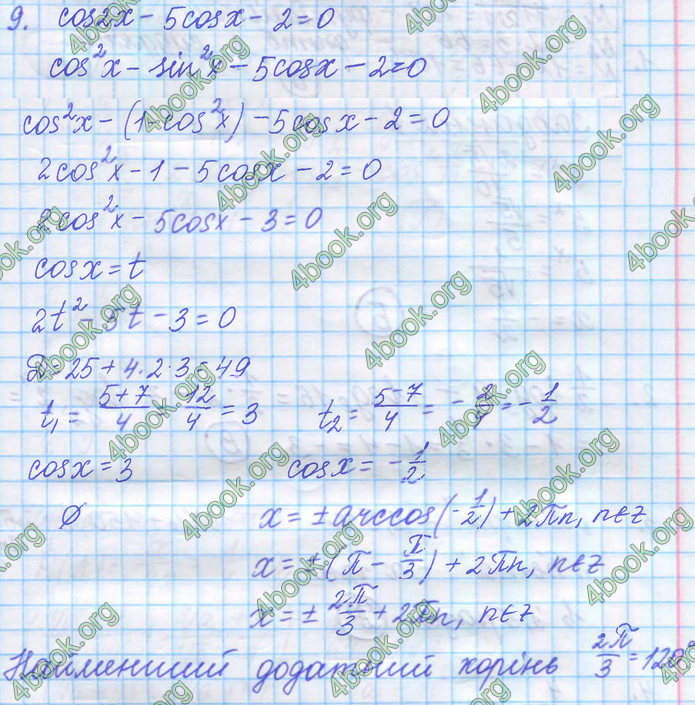 9. cos2x - 5cosx - 2 = 0
cos²x - sin²x - 5cosx - 2 = 0
cos²x - (1 - cos²x) - 5cosx - 2 = 0
2cos²x - 1 - 5cosx - 2 = 0
2cos²x - 5cosx - 3 = 0
cosx = t
2t² - 5t - 3 = 0
D = 25 + 4·2·3 = 49
t₁ = (5+7)/4 = 12/4 = 3 t₂ = (5-7)/4 = -2/4 = -1/2
cosx = 3 cosx = -1/2
∅ x = ± arccos(-1/2) + 2πn, n∈z
x = ± (π - π/3) + 2πn, n∈z
x = ± 2π/3 + 2πn, n∈z
Найменший додатний корінь 2π/3 = 120°
4book.org